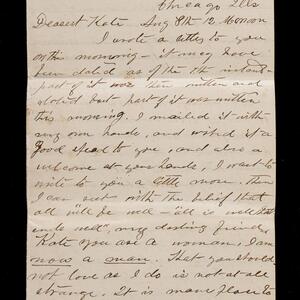 Chicago Ills
Dearest Kate Aug 8th 12
I wrote a letter to you
on this morning - it may have
been dated as of the 7th instant
part of it was then written and
part of it was written
this morning. I mailed it with
my own hands, and wished it a
good speed to you, and also a
welcome at your hands, I want to
write to you a little more. Then
I can rest with the belief that
all "will be well - all is well that
ends well", my darling friend,
Kate you are a woman, I am
now a man. That you should
not love as I do is not at all
strange. It is more place to